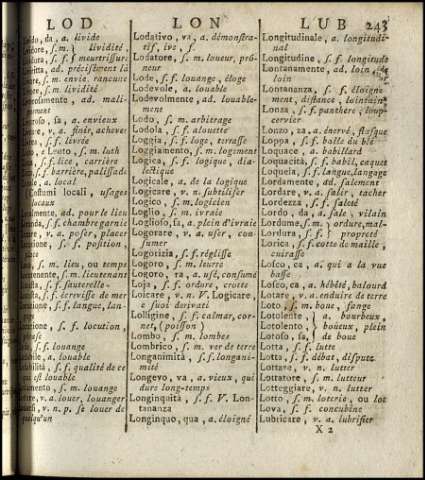 LOD LON LUB 243
, da, a. livide
, s. m. } lividité,
, s. f. } meurtrissure
, ad. précisément là
, s. m. envie, rancune
, s. m. lividité
, ad. mali-
ment
, sa, a. envieux
, v. a. finir, achever
, s. f. livrée
o Leuto, s. m. luth
, s. f. lice, carrière
, s. f. barrière, palissade
, a. local
Costumi locali, usages
locaux
, ad. pour le lieu
, s. f. chambre garnie
, v. a. poser, placer
, s. f. position
place
, s. m. lieu, ou temps
, s. m. lieutenant
, s. f. sauterelle
, s. f. écrevisse de mer
, s. f. langue, lan-
gage
, s. f. locution,
phrase
, s. f. louange
, a. louable
, s. f. qualité de ce
qui est louable
, s. m. louange
, v. a. louer, louanger
, v. n. p. se louer de
quelqu'un
Lodativo, va, a. démonstra-
tif, ive, f.
Lodatore, s. m. loueur, prô-
neur
Lode, s. f. louange, éloge
Lodevole, a. louable
Lodevolmente, ad. louable-
ment
Lodo, s. m. arbitrage
Lodola, s. f. alouette
Loggia, s. f. loge, terrasse
Loggiamento, s. m. logement
Logica, s. f. logique, dia-
lectique
Logicale, a. de la logique
Logicare, v. a. subtiliser
Logico, s. m. logicien
Loglio, s. m. ivraie
Logliofo, sa, a. plein d'ivraie
Logorare, v. a. user, con-
sumer
Logorizia, s. f. réglisse
Logoro, s. m. leurre
Logoro, ra, a. usé, consumé
Loja, s. f. ordure, crotte
Loicare, v. n. V. Logicare,
e suoi derivati
Lolligine, s. f. calmar, cor-
net, (poisson)
Lombo, s. m. lombes
Lombrico, s. m. ver de terre
Longanimità, s. f. longani-
mité
Longevo, va, a. vieux, qui
dure long-temps
Longinquità, s. f. V. Lon-
tananza
Longinquo, qua, a. éloigné
Longitudinale, a. longitudi-
nal
Longitudine, s. f. longitude
Lontanamente, ad. loin, de
loin
Lontananza, s. f. éloigne-
ment, distance, lointain
Lonza, s. f. panthere, loup-
cervier
Lonzo, za, a. énervé, flasque
Loppa, s. f. balle du blé
Loquace, a. babillard
Loquacità, s. f. babil, caquet
Loquela, s. f. langue, langage
Lordamente, ad. salement
Lordare, v. a. salir, tacher
Lordezza, s. f. saleté
Lordo, da, a. sale, vilain
Lordume, s. m. } ordure, mal-
Lordura, s. f. } propreté
Lorica, s. f. cotte de maille,
cuirasse
Losco, ca, a. qui a la vue
basse
Losco, ca, a. hébété, balourd
Lotare, v. a. enduire de terre
Loto, s. m. boue, fange
Lotolente, } a. bourbeux,
Lotolento, } boueux, plein
Lotoso, sa, } de boue
Lotta, s. f. lutte
Lotta, s. f. débat, dispute
Lottare, v. n. lutter
Lottatore, s. m. lutteur
Lotteggiare, v. n. lutter
Lotto, s. m. loterie, ou lot
Lova, s. f. concubine
Lubricare, v. a. lubrifier
X 2